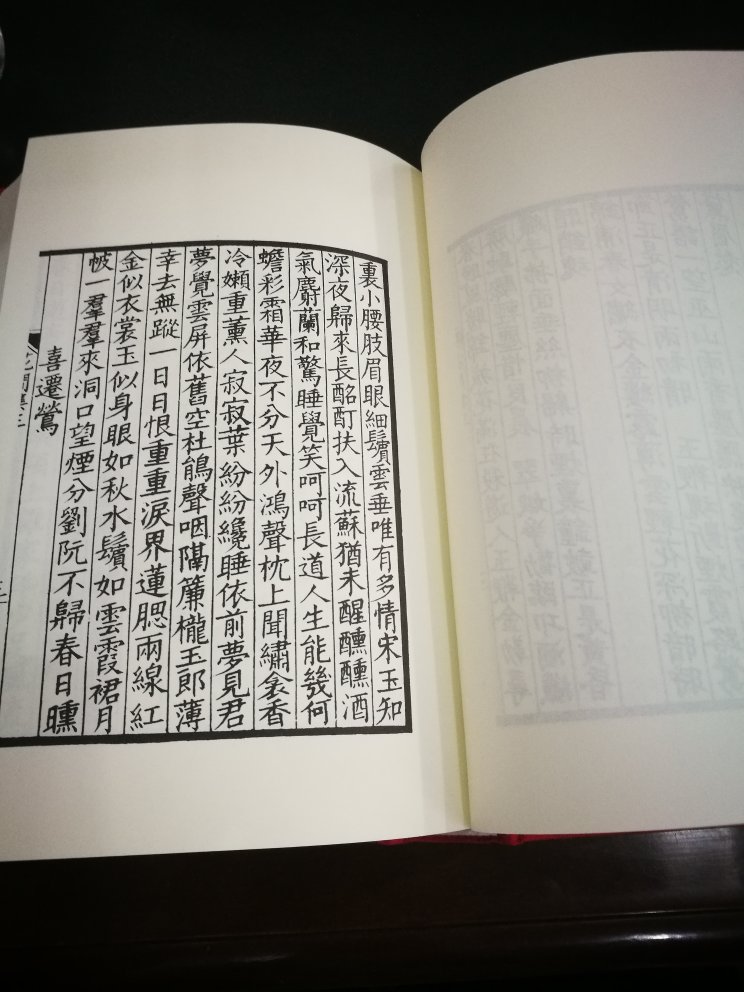 裏小腰肢眉眼細鬢雲垂唯有多情宋玉知
深夜歸來長酩酊扶入流蘇猶未醒醺醺酒
氣麝蘭和驚睡覺笑呵呵長道人生能幾何
蟾彩霜華夜不分天外鴻聲枕上聞繡衾香
冷嬾重薰人寂寂葉紛紛纔睡依前夢見君
夢覺雲屏依舊空杜鵑聲咽隔簾櫳玉郎薄
幸去無蹤一日日恨重重淚界蓮腮兩線紅
金似衣裳玉似身眼如秋水鬢如雲霞裙月
帔一羣羣來洞口望煙分劉阮不歸春日曛
喜遷鶯